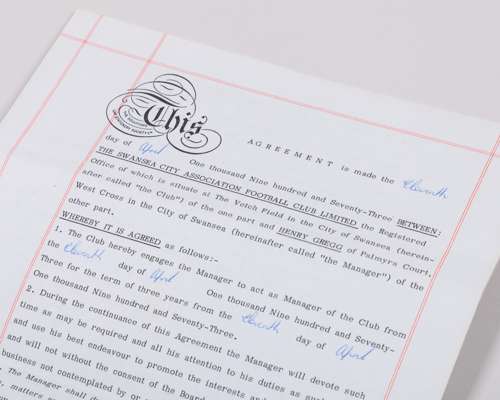 This AGREEMENT is made the Eleventh
day of April One thousand Nine hundred and Seventy-Three BETWEEN:
THE SWANSEA CITY ASSOCIATION FOOTBALL CLUB LIMITED the Registered
Office of which is situate at The Vetch Field in the City of Swansea (herein-
after called "the Club") of the one part and HENRY GREGG of Palmyra Court,
West Cross in the City of Swansea (hereinafter called "the Manager") of the
other part.
WHEREBY IT IS AGREED as follows:-
1. The Club hereby engages the Manager to act as Manager of the Club from
the Eleventh day of April One thousand Nine hundred and Seventy-
Three for the term of three years from the Eleventh day of April
One thousand Nine hundred and Seventy-Three.
2. During the continuance of this Agreement the Manager will devote such
time as may be required and all his attention to his duties as such
and use his best endeavour to promote the interests and
and will not without the consent of the Board
business not contemplated by or
The Manager shall
matters